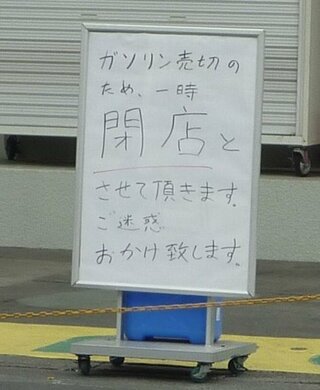 ガソリン売切の
ため、一時
閉店と
させて頂きます.
ご迷惑
おかけ致します.